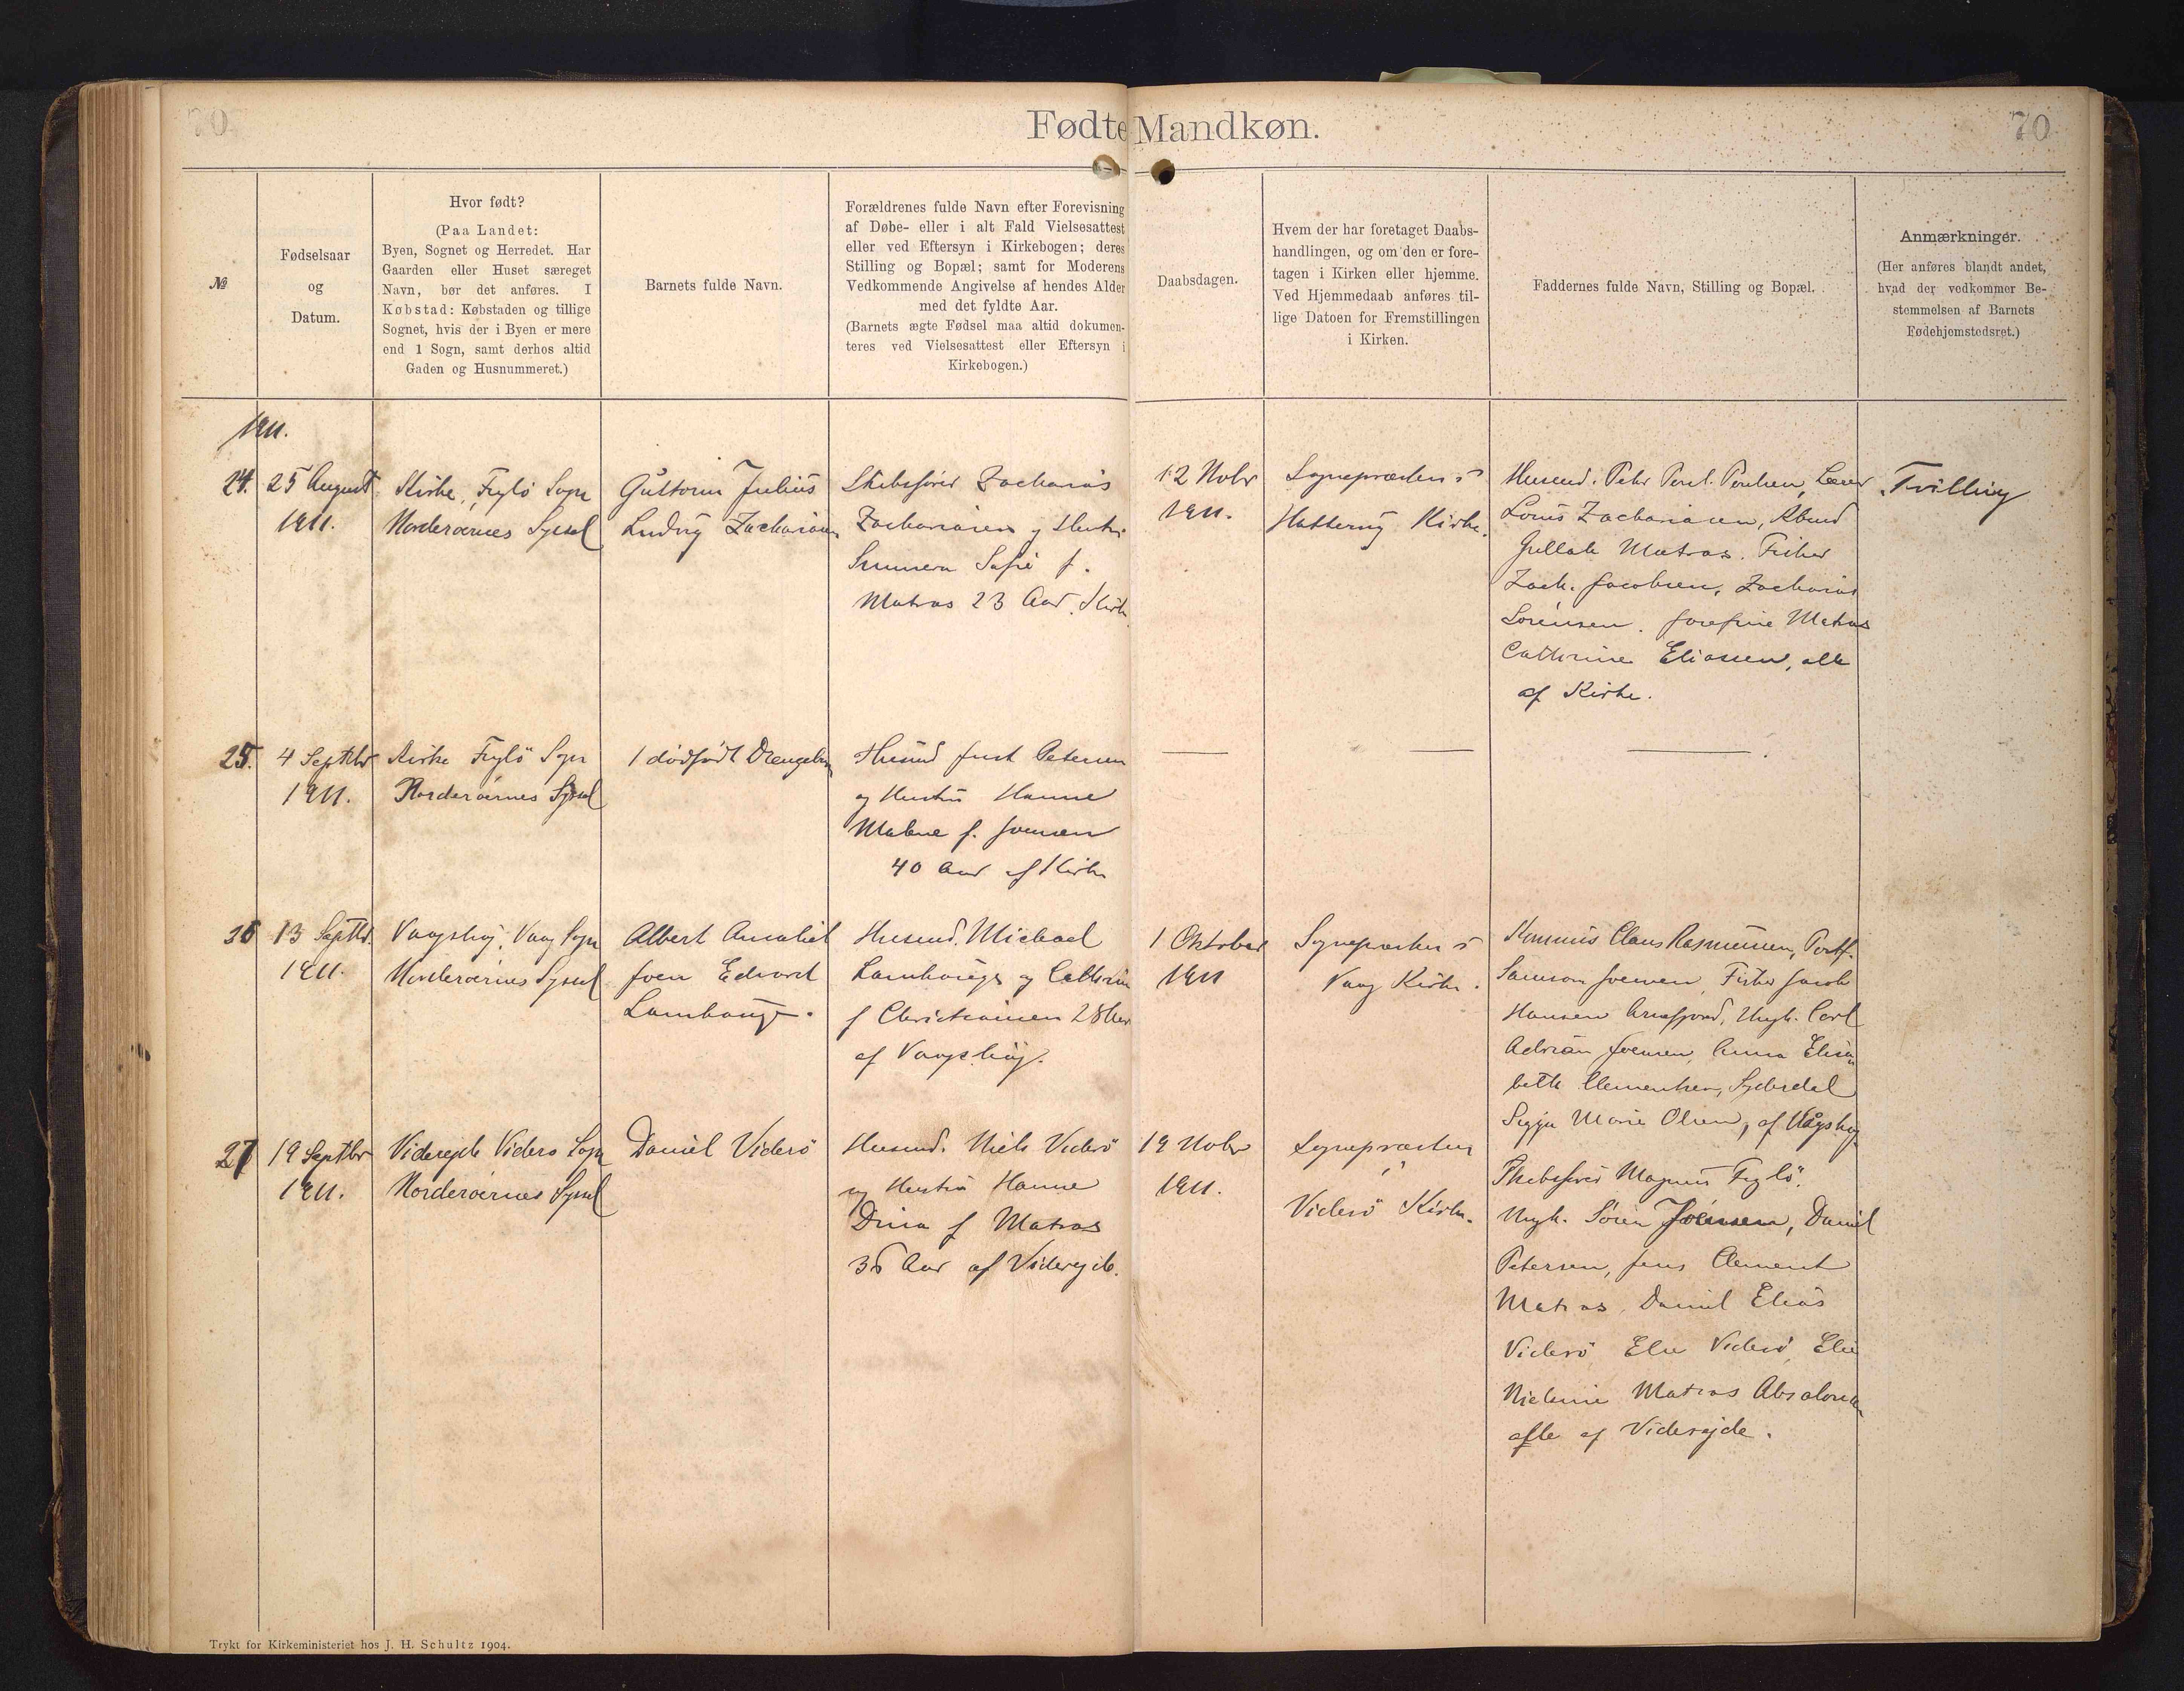 70
Fødte Mandkøn.
70
№
Fødselsaar
og
Datum.
Hvor født?
(Paa Landet:
Byen, Sognet og Herredet. Har
Gaarden eller Huset særeget
Navn, bør det anføres. I
Købstad: Købstaden og tillige
Sognet, hvis der i Byen er mere
end 1 Sogn, samt derhos altid
Gaden og Husnummeret.)
Barnets fulde Navn.
Forældrenes fulde Navn efter Forevisning
af Døbe- eller i alt Fald Vielsesattest
eller ved Eftersyn i Kirkebogen; deres
Stilling og Bopæl; samt for Moderens
Vedkommende Angivelse af hendes Alder
med det fyldte Aar.
(Barnets ægte Fødsel maa altid dokumen-
teres ved Vielsesattest eller Eftersyn i
Kirkebogen.)
Daabsdagen.
Hvem der har foretaget Daabs-
handlingen, og om den er fore-
tagen i Kirken eller hjemme.
Ved Hjemmedaab anføres til-
lige Datoen for Fremstillingen
i Kirken.
Faddernes fulde Navn, Stilling og Bopæl.
Anmærkninger.
(Her anføres blandt andet,
hvad der vedkommer Be-
stemmelsen af Barnets
Fødehjemstedsret.)
1911.
24.
25 August
1911.
Kirke, Fuglö Sogn
Norderøernes Syssel
Guttorm Julius
Ludvig Zachariasen
Skibsfører Zacharias
Zachariasen og Hustru
Sunneva Sofie f.
Matras 23 Aar. Kirke
12 Novbr
1911.
Sognepræsten i
Hattervig Kirke.
Husmd. Peter Poul Poulsen, Lærer
Louis Zachariasen, Kbmd
Gullak Matras. Fisker
Zach. Jacobsen, Zacharias
Sörensen. Josefine Matras
Cathrine Eliassen, alle
af Kirke.
Tvilling
25.
4 Septbr
1911.
Kirke Fuglö Sogn
Norderøernes Syssel
1 dödfödt Drengebarn
Husmd Just Petersen
og Hustru Hanne
Malene f. Joensen
40 Aar af Kirke
26
13 Septbr.
1911.
Vaagshøj, Vaag Sogn
Norderøernes Syssel
Albert
Joen Edvard
Lamhauge.
Husmd. Michael
Lamhauge og Cathrine
f Christiansen 28 Aar
af Vaagshøj.
1 Oktober
1911
Sognepræsten i
Vaag Kirke.
Claus Rasmussen,
Samson Joensen, Fisker Jacob
Hansen Arnefjord, Ungk. Carl
Adrian Joensen, Anna Elisa
beth Clementsen, Syderdal
Marie Olsen, af Vågshøj
27
19 Septbr
1911.
Viderejde Viderö Sogn
Norderøernes Syssel
Daniel Viderö
Husmd. Niels Viderö
og Hustru Hanne
Dina f Matras
36 Aar af Viderejde.
19 Novbr
1911.
Sognepræsten
i
Viderö Kirke.
Skibsfører Magnus Fuglö.
Ungk. Sören Joensen, Daniel
Petersen, Jens Clement
Matras, Daniel Elias
Viderö Else Viderö, Else
Matras Absalonsen
alle af Viderejde.
Trykt for Kirkeministeriet hos J. H. Schultz 1904.